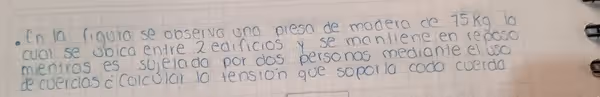 .En la figura se observa una presa de madera de 75 Kg la
cual se ubica entre 2 edificios y se mantiene en reposo
mientras es sujelada por dos personas mediante el uso
de cuerdas ¿Calcular la tensión que soporta cada cuerda